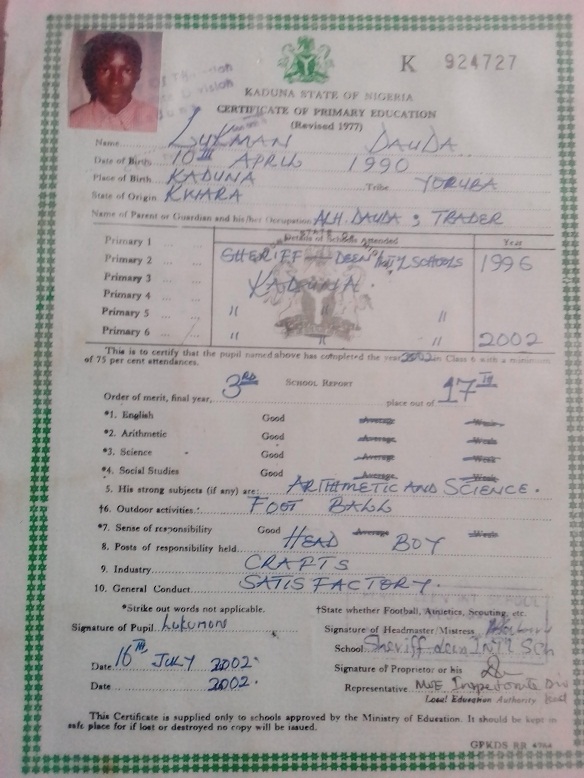 K 924727
KADUNA STATE OF NIGERIA
CERTIFICATE OF PRIMARY EDUCATION
(Revised 1977)
Name LUKMAN DAUDA
Date of Birth 10TH APRIL 1990
Place of Birth KADUNA Tribe YORUBA
State of Origin KWARA
Name of Parent or Guardian and his/her Occupation ALH. DAUDA ; TRADER
Details of Schools Attended Year
Primary 1
Primary 2 SHERIFF DEEN INT'L SCHOOLS 1996
Primary 3 KADUNA.
Primary 4
Primary 5 " "
Primary 6 " " " 2002
This is to certify that the pupil named above has completed the year 2002 in Class 6 with a minimum
of 75 per cent attendances.
SCHOOL REPORT
Order of merit, final year, 3RD place out of 17TH
*1. English Good Average Weak
*2. Arithmetic Good Average Weak
*3. Science Good Average Weak
*4. Social Studies Good Average Weak
5. His strong subjects (if any) are: ARITHMETIC AND SCIENCE.
†6. Outdoor activities: FOOT BALL
*7. Sense of responsibility Good Average Weak
8. Posts of responsibility held HEAD BOY
9. Industry CRAFTS
10. General Conduct SATISFACTORY.
*Strike out words not applicable. †State whether Football, Athletics, Scouting, etc.
Signature of Pupil Lukumon Signature of Headmaster/Mistress
School Sheriff deen INT'L Sch
Date 16TH JULY 2002. Signature of Proprietor or his
Date 2002. Representative MOE Inspectorate Div
Local Education Authority
This Certificate is supplied only to schools approved by the Ministry of Education. It should be kept in
safe place for if lost or destroyed no copy will be issued.
GPKDS RR